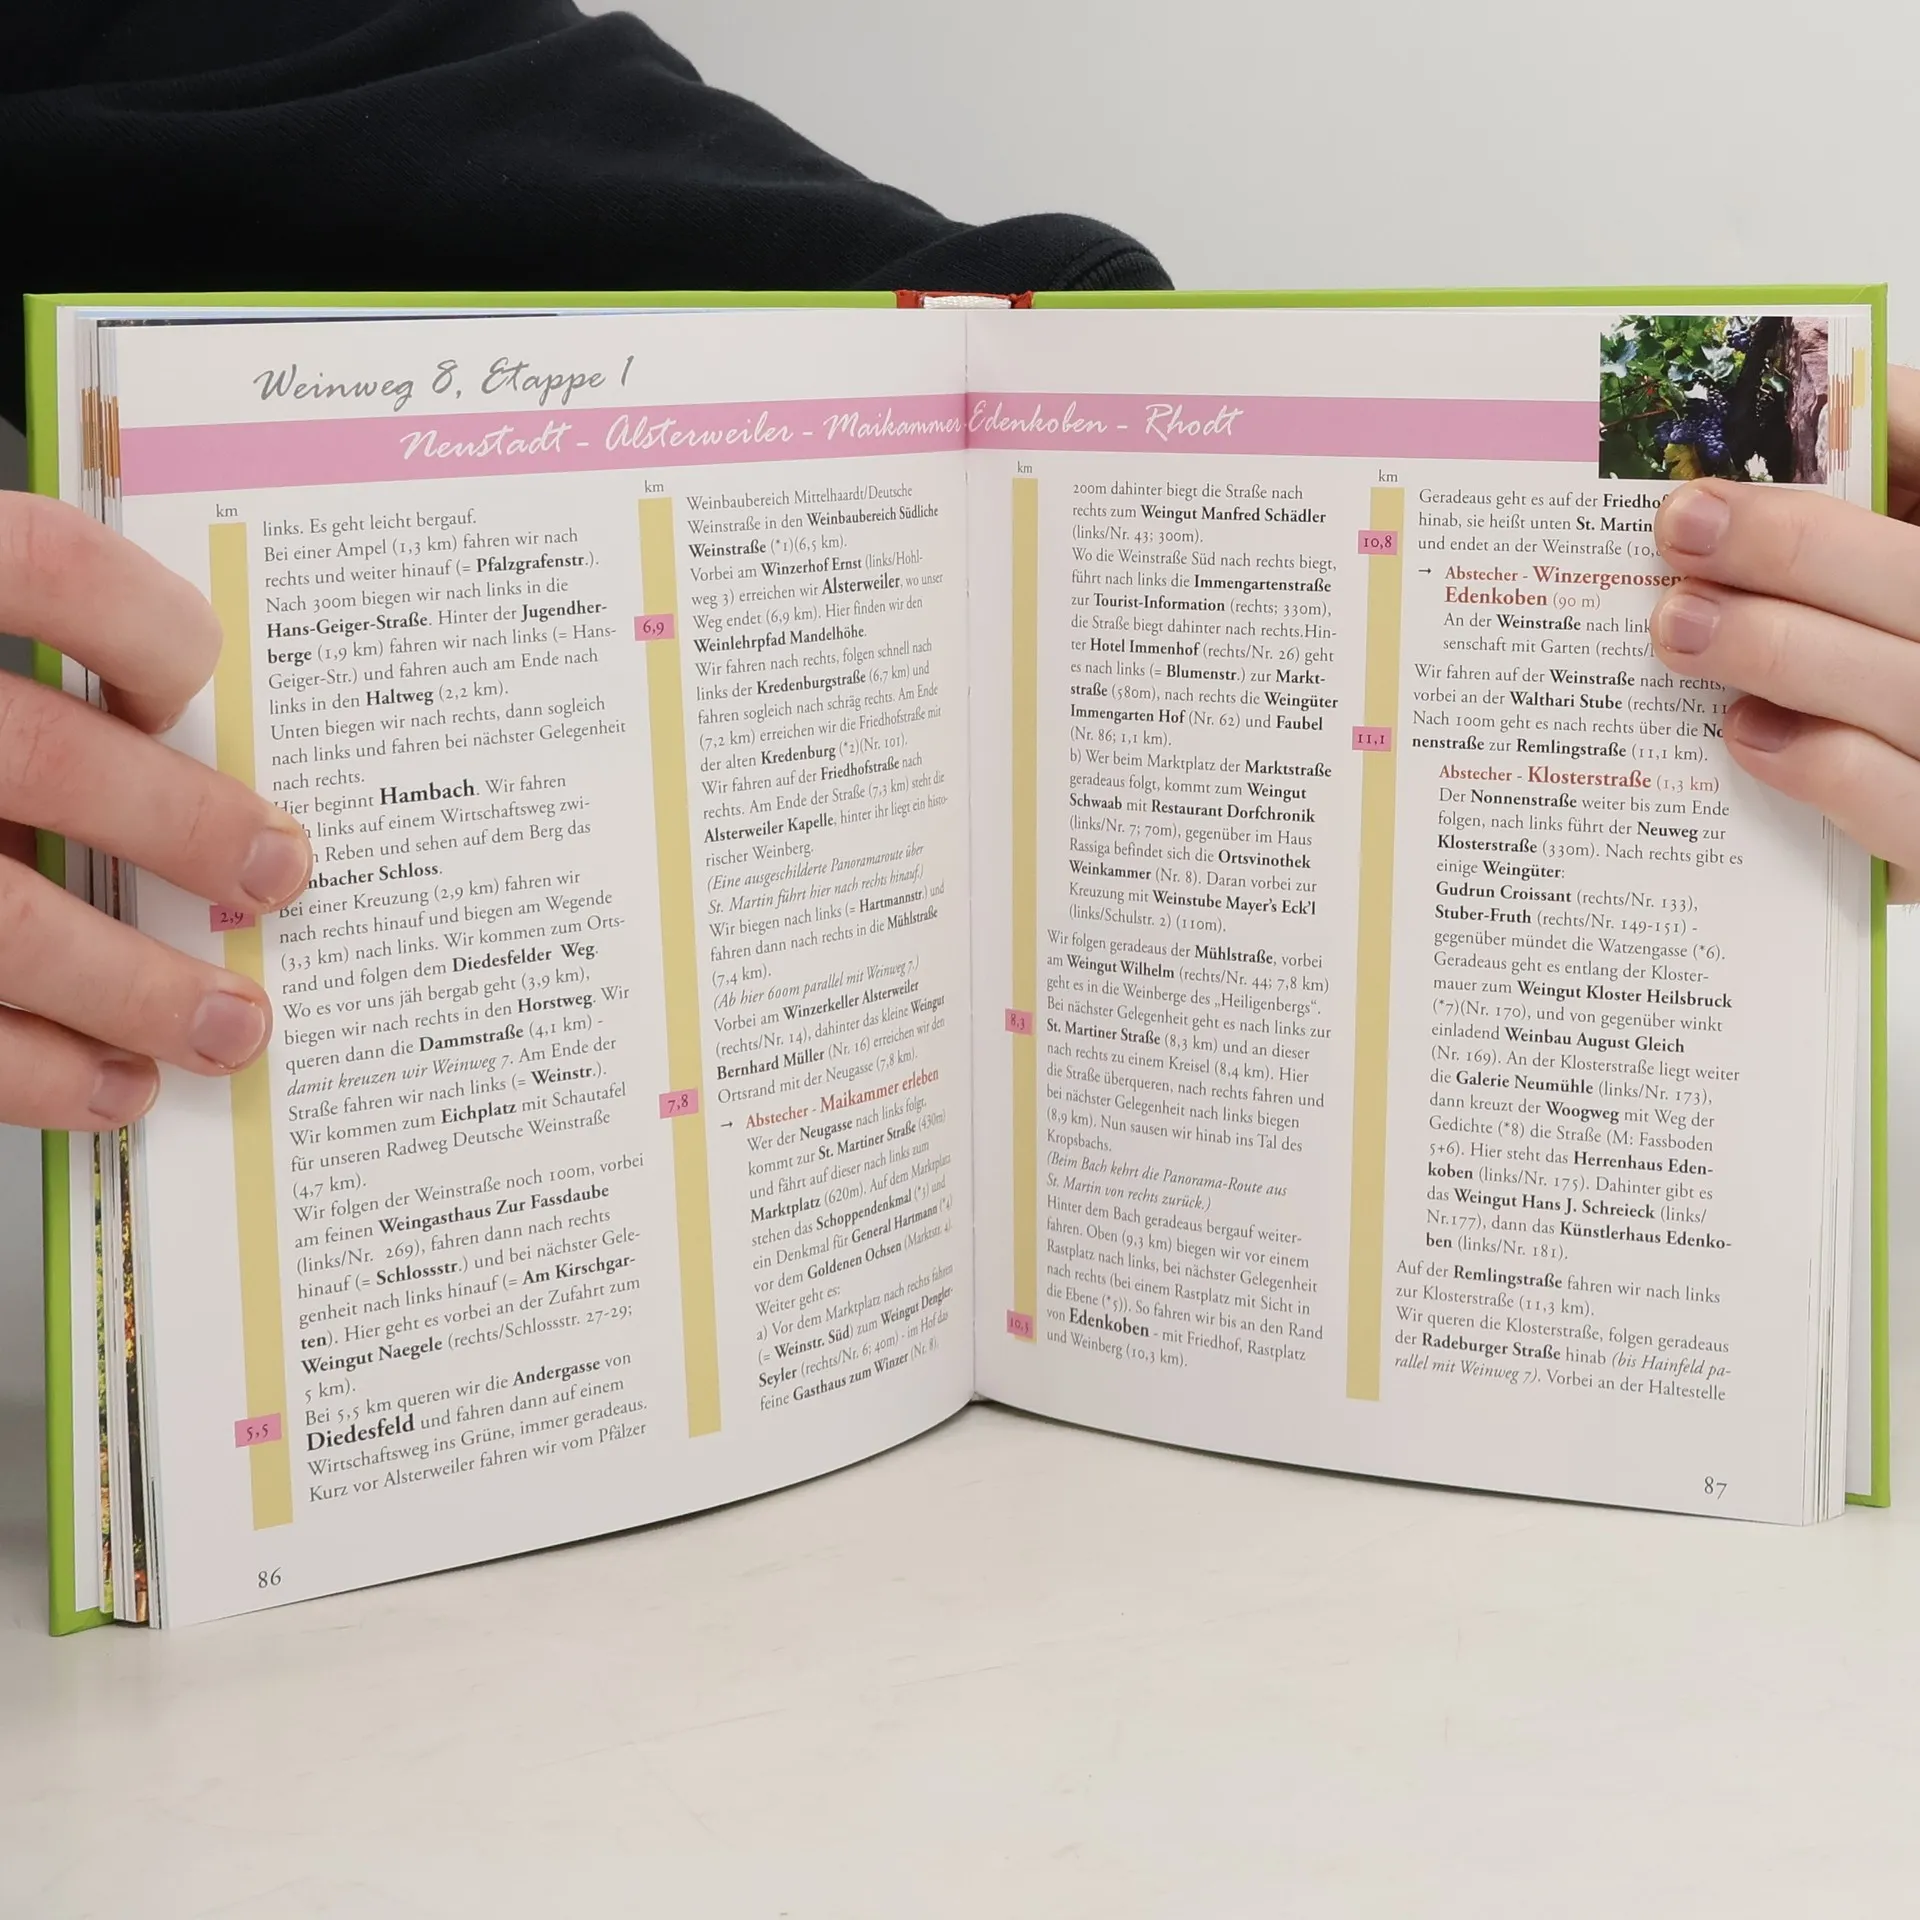 Weinweg 8, Etappe 1
Neustadt - Alsterweiler - Maikammer
Edenkoben - Rhodt
km
2,9
5,5
links. Es geht leicht bergauf.
Bei einer Ampel (1,3 km) fahren wir nach
rechts und weiter hinauf (= Pfalzgrafenstr.).
Nach 300m biegen wir nach links in die
Hans-Geiger-Straße. Hinter der Jugendher-
berge (1,9 km) fahren wir nach links (= Hans-
Geiger-Str.) und fahren auch am Ende nach
links in den Haltweg (2,2 km).
Unten biegen wir nach rechts, dann sogleich
nach links und fahren bei nächster Gelegenheit
nach rechts.
Hier beginnt Hambach. Wir fahren
links auf einem Wirtschaftsweg zwi-
Reben und sehen auf dem Berg das
Schloss.
Bei einer Kreuzung (2,9 km) fahren wir
nach rechts hinauf und biegen am Wegende
(3,3 km) nach links. Wir kommen zum Orts-
rand und folgen dem Diedesfelder Weg.
Wo es vor uns jäh bergab geht (3,9 km),
biegen wir nach rechts in den Horstweg. Wir
queren dann die Dammstraße (4,1 km) -
damit kreuzen wir Weinweg 7. Am Ende der
Straße fahren wir nach links (= Weinstr.).
Wir kommen zum Eichplatz mit Schautafel
für unseren Radweg Deutsche Weinstraße
(4,7 km).
Wir folgen der Weinstraße noch 100m, vorbei
am feinen Weingasthaus Zur Fassdaube
(links/Nr. 269), fahren dann nach rechts
hinauf (= Schlossstr.) und bei nächster Gele-
genheit nach links hinauf (= Am Kirschgar-
ten). Hier geht es vorbei an der Zufahrt zum
Weingut Naegele (rechts/Schlossstr. 27-29;
5 km).
Bei 5,5 km queren wir die Andergasse von
Diedesfeld und fahren dann auf einem
Wirtschaftsweg ins Grüne, immer geradeaus.
Kurz vor Alsterweiler fahren wir vom Pfälzer
86
km
6,9
7,8
Weinbaubereich Mittelhaardt/Deutsche
Weinstraße in den Weinbaubereich Südliche
Weinstraße (*1)(6,5 km).
Vorbei am Winzerhof Ernst (links/Hohl-
weg 3) erreichen wir Alsterweiler, wo unser
Weg endet (6,9 km). Hier finden wir den
Weinlehrpfad Mandelhöhe.
Wir fahren nach rechts, folgen schnell nach
links der Kredenburgstraße (6,7 km) und
fahren sogleich nach schräg rechts. Am Ende
(7,2 km) erreichen wir die Friedhofstraße mit
der alten Kredenburg (*2)(Nr. 101).
Wir fahren auf der Friedhofstraße nach
rechts. Am Ende der Straße (7,3 km) steht die
Alsterweiler Kapelle, hinter ihr liegt ein histo-
rischer Weinberg.
(Eine ausgeschilderte Panoramaroute über
St. Martin führt hier nach rechts hinauf.)
Wir biegen nach links (= Hartmannstr.) und
fahren dann nach rechts in die Mühlstraße
(7,4 km).
(Ab hier 600m parallel mit Weinweg 7.)
Vorbei am Winzerkeller Alsterweiler
(rechts/Nr. 14), dahinter das kleine Weingut
Bernhard Müller (Nr. 16) erreichen wir den
Ortsrand mit der Neugasse (7,8 km).
→ Abstecher - Maikammer erleben
Wer der Neugasse nach links folgt,
kommt zur St. Martiner Straße (430m)
und fährt auf dieser nach links zum
Marktplatz (620m). Auf dem Marktplatz
stehen das Schoppendenkmal (*3) und
ein Denkmal für General Hartmann (*4)
vor dem Goldenen Ochsen (Marktstr. 4).
Weiter geht es:
a) Vor dem Marktplatz nach rechts fahren
(= Weinstr. Süd) zum Weingut Dengler-
Seyler (rechts/Nr. 6; 40m) - im Hof das
feine Gasthaus zum Winzer (Nr. 8).
km
8,3
10,3
200m dahinter biegt die Straße nach
rechts zum Weingut Manfred Schädler
(links/Nr. 43; 300m).
Wo die Weinstraße Süd nach rechts biegt,
führt nach links die Immengartenstraße
zur Tourist-Information (rechts; 330m),
die Straße biegt dahinter nach rechts.Hin-
ter Hotel Immenhof (rechts/Nr. 26) geht
es nach links (= Blumenstr.) zur Markt-
straße (580m), nach rechts die Weingüter
Immengarten Hof (Nr. 62) und Faubel
(Nr. 86; 1,1 km).
b) Wer beim Marktplatz der Marktstraße
geradeaus folgt, kommt zum Weingut
Schwaab mit Restaurant Dorfchronik
(links/Nr. 7; 70m), gegenüber im Haus
Rassiga befindet sich die Ortsvinothek
Weinkammer (Nr. 8). Daran vorbei zur
Kreuzung mit Weinstube Mayer's Eck'l
(links/Schulstr. 2) (110m).
Wir folgen geradeaus der Mühlstraße, vorbei
am Weingut Wilhelm (rechts/Nr. 44; 7,8 km)
geht es in die Weinberge des „Heiligenbergs".
Bei nächster Gelegenheit geht es nach links zur
St. Martiner Straße (8,3 km) und an dieser
nach rechts zu einem Kreisel (8,4 km). Hier
die Straße überqueren, nach rechts fahren und
bei nächster Gelegenheit nach links biegen
(8,9 km). Nun sausen wir hinab ins Tal des
Kropsbachs.
(Beim Bach kehrt die Panorama-Route aus
St. Martin von rechts zurück.)
Hinter dem Bach geradeaus bergauf weiter-
fahren. Oben (9,3 km) biegen wir vor einem
Rastplatz nach links, bei nächster Gelegenheit
nach rechts (bei einem Rastplatz mit Sicht in
die Ebene (*5)). So fahren wir bis an den Rand
von Edenkoben - mit Friedhof, Rastplatz
und Weinberg (10,3 km).
km
10,8
11,1
Geradeaus geht es auf der
hinab, sie heißt unten St. Martin
und endet an der Weinstraße
→ Abstecher -
Edenkoben (90 m)
An der Weinstraße nach
senschaft mit Garten
Wir fahren auf der Weinstraße nach rechts,
vorbei an der Walthari Stube (rechts/Nr.
Nach 100m geht es nach rechts über die
nenstraße zur Remlingstraße (11,1 km).
Abstecher - Klosterstraße (1,3 km)
Der Nonnenstraße weiter bis zum Ende
folgen, nach links führt der Neuweg zur
Klosterstraße (330m). Nach rechts gibt es
einige Weingüter:
Gudrun Croissant (rechts/Nr. 133),
Stuber-Fruth (rechts/Nr. 149-151) -
gegenüber mündet die Watzengasse (*6).
Geradeaus geht es entlang der Kloster-
mauer zum Weingut Kloster Heilsbruck
(*7)(Nr. 170), und von gegenüber winkt
einladend Weinbau August Gleich
(Nr. 169). An der Klosterstraße liegt weiter
die Galerie Neumühle (links/Nr. 173),
dann kreuzt der Woogweg mit Weg der
Gedichte (*8) die Straße (M: Fassboden
5+6). Hier steht das Herrenhaus Eden-
koben (links/Nr. 175). Dahinter gibt es
das Weingut Hans J. Schreieck (links/
Nr.177), dann das Künstlerhaus Edenko-
ben (links/Nr. 181).
Auf der Remlingstraße fahren wir nach links
zur Klosterstraße (11,3 km).
Wir queren die Klosterstraße, folgen geradeaus
der Radeburger Straße hinab (bis Hainfeld pa-
rallel mit Weinweg 7). Vorbei an der Haltestelle
87